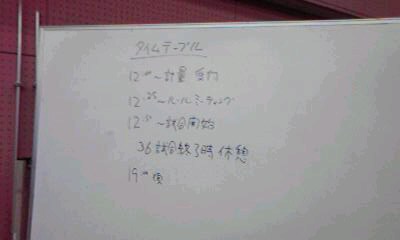 タイムテーブル
12:00～計量 受付
12:25～ルールミーティング
12:50～試合開始
36試合終了時 休憩
19:00頃